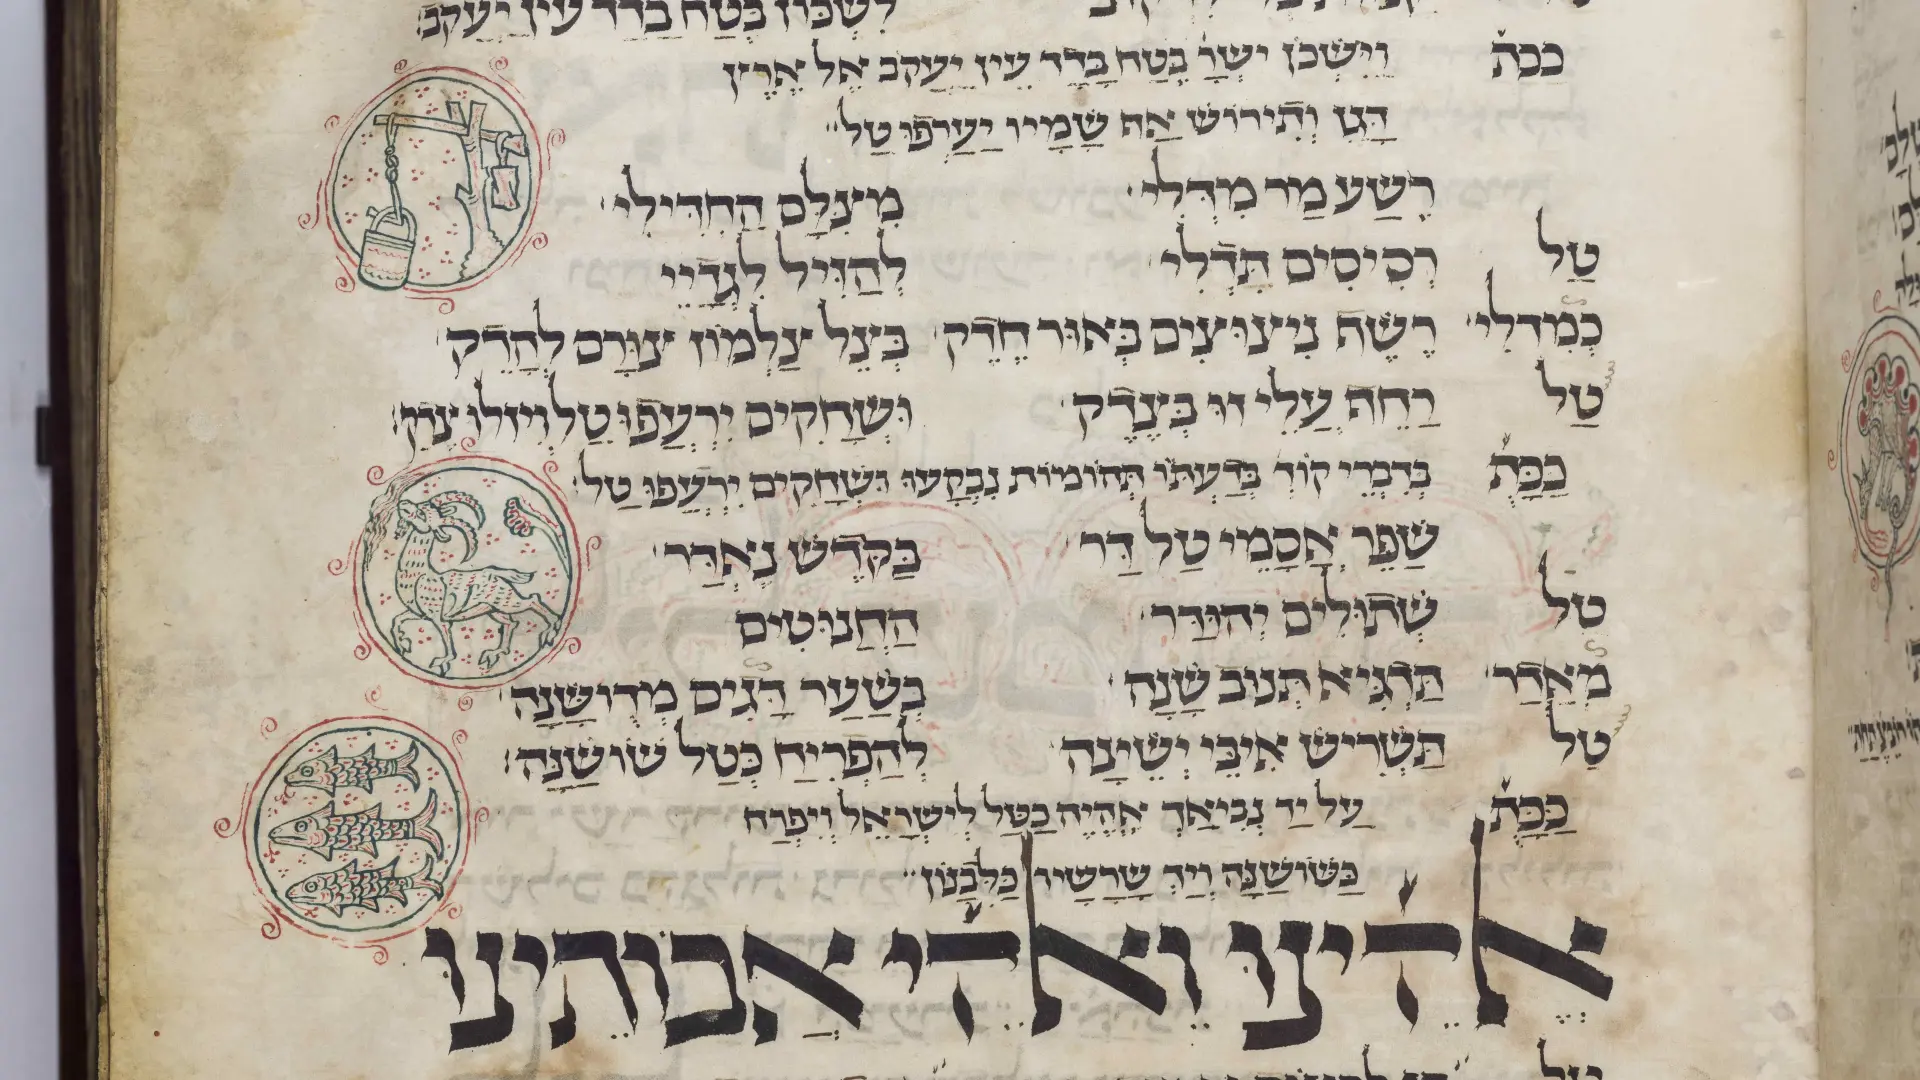 לשכון בטח בדד עין יעקב
ככת׳ וַיִשְׁכֹּן ישר׳ בֶּטַח בָּדָד עֵין יַעֲקֹב אֶל אֶרֶץ
דָּגָן וְתִירוֹשׁ אַף שָׁמָיו יַעַרְפוּ טַל׃
רֶשַׁע מַר מִדְּלִי מִצֶּלֶם הַחֲדִילִי
טַל רְסִיסִים תַּדְלִי לְהַזִּיל לִגְדָיַי
כְּמִדְלִי רֶשֶׁף נִיצוֹצִים כְּאוּר חֶדֶק בְּצֵל צַלְמוֹן צוּרָם לְהָדֵק
טַל רַחֵף עֲלֵי זוּ בְּצֶדֶק וּשְׁחָקִים יִרְעֲפוּ טַל וְיִזְּלוּ צֶדֶק
כַּכָּת׳ בְּדִבְרֵי קוֹד׳ בְּדַעְתּוֹ תְּהוֹמוֹת נִבְקָעוּ וּשְׁחָקִים יִרְעֲפוּ טַל
שַׁפֵּר אֲסָמַי טַל דַּר בַּקֹּדֶשׁ נֶאְדָּר
טַל שְׁתוּלִים יְהַדַּר הַחֲנוּטִים
מֵאֲדָר תַּרְגִּיא תְּנוּב שָׁנָה בְּשַׁעַר דָּגִים מְדֻוּשָּׁנָה
טַל תַּשְׁרִישׁ אִיבֵּי יְשֵׁינָה לְהַפְרִיחַ כְּטַל שׁוֹשַׁנָּה
כַּכָּת׳ עַל יַד נְבִיאָךְ אֶהְיֶה כַטַּל לְיִשְׂרָאֵל וְיִפְרַח
כַּשּׁוֹשַׁנָּה וְיַךְ שָׁרָשָׁיו כַּלְּבָנוֹן׃
אֱלֹהֵינוּ וֵאלֹהֵי אֲבוֹתֵינוּ